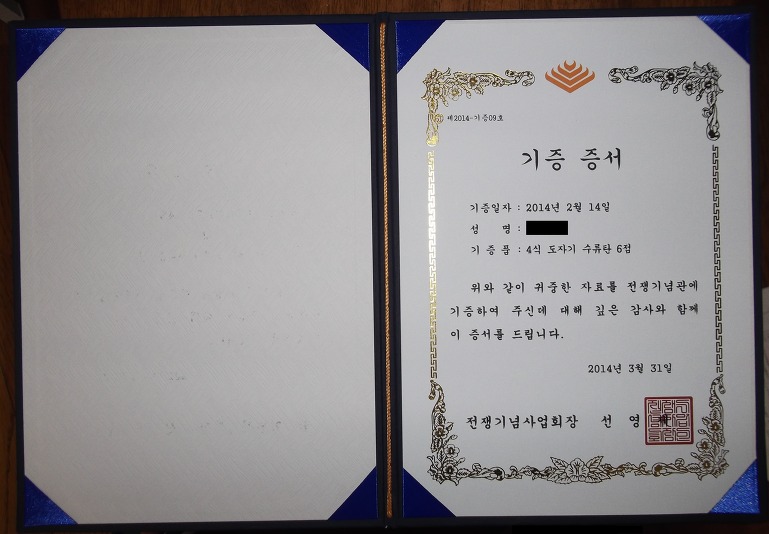 제2014-기증09호
기증 증서
기증일자 : 2014년 2월 14일
성 명 :
기 증 품 : 4식 도자기 수류탄 6점
위와 같이 귀중한 자료를 전쟁기념관에
기증하여 주신데 대해 깊은 감사와 함께
이 증서를 드립니다.
2014년 3월 31일
전쟁기념사업회장 선 영